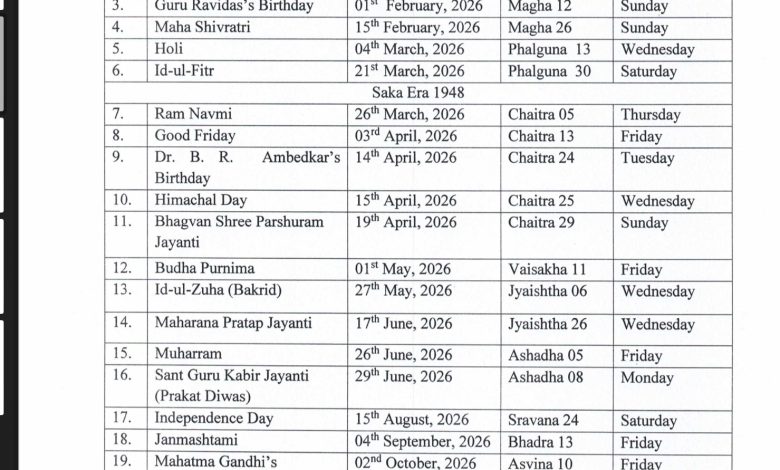 3. Guru Ravidas's Birthday 01st February, 2026 Magha 12 Sunday
4. Maha Shivratri 15th February, 2026 Magha 26 Sunday
5. Holi 04th March, 2026 Phalguna 13 Wednesday
6. Id-ul-Fitr 21st March, 2026 Phalguna 30 Saturday
Saka Era 1948
7. Ram Navmi 26th March, 2026 Chaitra 05 Thursday
8. Good Friday 03rd April, 2026 Chaitra 13 Friday
9. Dr. B. R. Ambedkar's 14th April, 2026 Chaitra 24 Tuesday
Birthday
10. Himachal Day 15th April, 2026 Chaitra 25 Wednesday
11. Bhagvan Shree Parshuram 19th April, 2026 Chaitra 29 Sunday
Jayanti
12. Budha Purnima 01st May, 2026 Vaisakha 11 Friday
13. Id-ul-Zuha (Bakrid) 27th May, 2026 Jyaishtha 06 Wednesday
14. Maharana Pratap Jayanti 17th June, 2026 Jyaishtha 26 Wednesday
15. Muharram 26th June, 2026 Ashadha 05 Friday
16. Sant Guru Kabir Jayanti 29th June, 2026 Ashadha 08 Monday
(Prakat Diwas)
17. Independence Day 15th August, 2026 Sravana 24 Saturday
18. Janmashtami 04th September, 2026 Bhadra 13 Friday
19. Mahatma Gandhi's 02nd October, 2026 Asvina 10 Friday